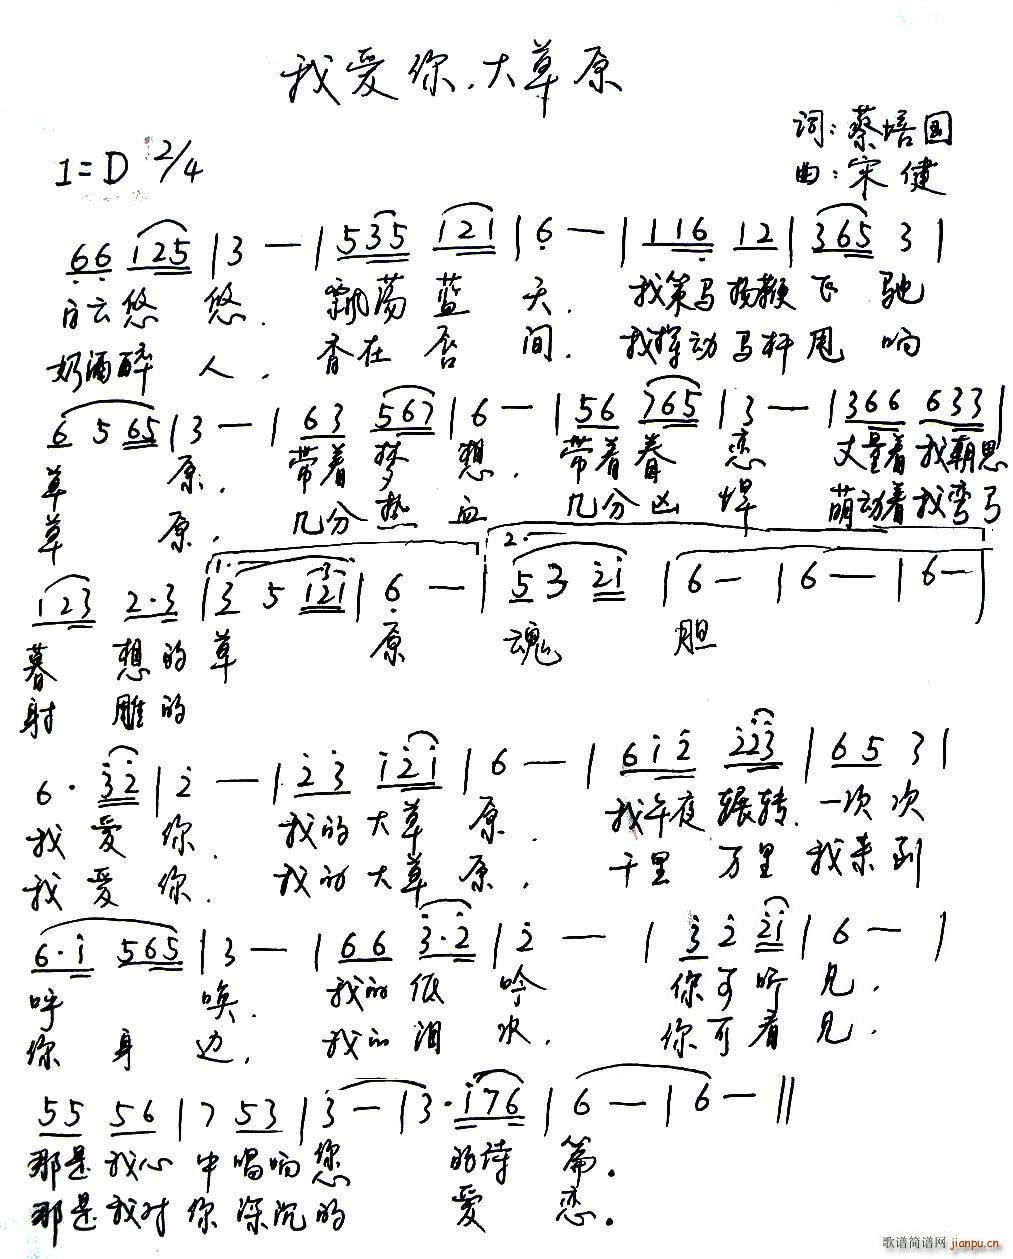 我爱你.大草原
词:蔡培国
1=D 2/4
曲:宋健
66 125 | 3 — | 535 121 | 6 — | 116 12 | 365 3 |
白云悠 悠. 飘荡蓝 天. 我策马扬鞭飞 驰
奶酒醉 人. 香在唇 间. 我挥动马杆甩 响
6 5 65 | 3 — | 63 567 | 6 — | 56 765 | 3 — | 366 633 |
草 原. 带着梦 想. 带着眷 恋 丈量着我朝思
草 原. 几分热 血 几分凶 悍 萌动着我弯弓
123 2·3 | 1. 3 5 121 | 6 — | 2. 5 3 21 | 6 — | 6 — | 6 —
暮 想的草 原 魂 胆
射 雕的
6· 32 | 2 — | 23 121 | 6 — | 612 223 | 65 3 |
我 爱 你. 我的大草 原. 我午夜 辗转.一次次
我 爱 你. 我的大草 原. 千里 万里 我来到
6·1 565 | 3 — | 66 3·2 | 2 — | 3 2 21 | 6 — |
呼 唤. 我的低 吟 你可听 见.
你 身 边. 我的泪 水. 你可看 见.
55 56 | 7 53 | 3 — | 3· 176 | 6 — | 6 — ‖
那是我心 中唱响您 的诗 篇.
那是我对 你深沉的 爱 恋.
歌谱简谱网
jianpu.cn